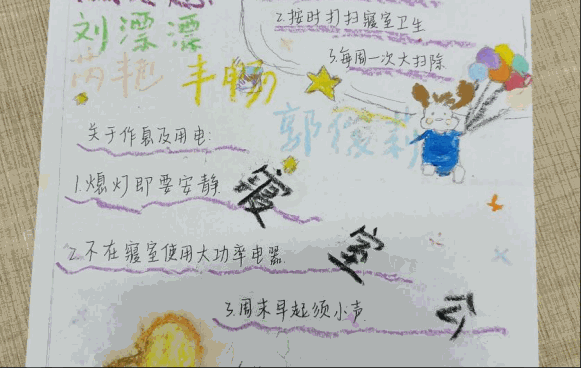 2.按时打扫寝室卫生
刘漂漂
3.每周一次大扫除
丰畅
关于作息及用电:
1.熄灯即要安静
寝
2.不在寝室使用大功率电器
室
3.周末早起须小声
公